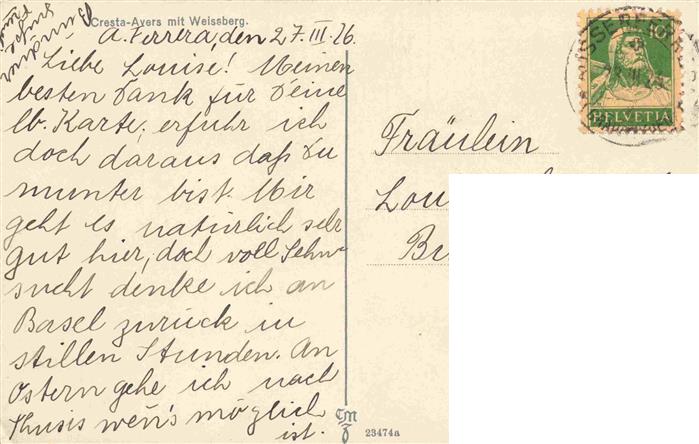 Cresta-Avers mit Weissberg.
A. Ferrera, den 27.III.26.
Liebe Louise! Meinen
besten Dank für Deine
lb. Karte, erfuhr ich
doch daraus daß Du
munter bist. Mir
geht es natürlich sehr
gut hier, doch voll Sehn-
sucht denke ich an
Basel zurück in
stillen Stunden. An
Ostern gehe ich nach
Thusis wen̄'s möglich
ist.
23474a
10
HELVETIA
Fräulein
Lou